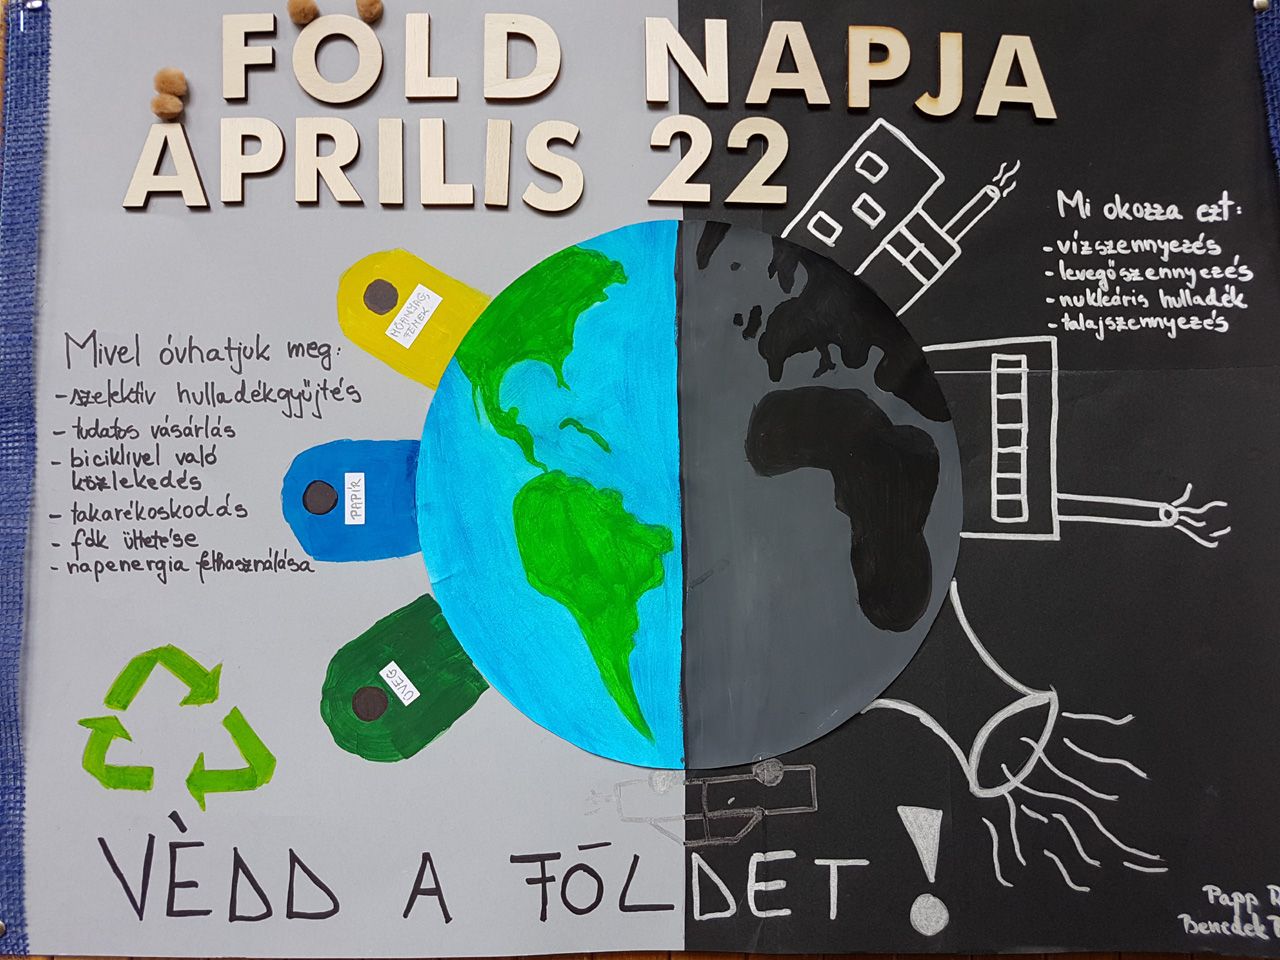 FÖLD NAPJA
ÁPRILIS 22
Mi okozza ezt:
- vízszennyezés
- levegőszennyezés
- nukleáris hulladék
- talajszennyezés
MŰANYAG,
FÉMEK
Mivel óvhatjuk meg:
- szelektív hulladékgyűjtés
- tudatos vásárlás
- biciklivel való
közlekedés
- takarékoskodás
- fák ültetése
- napenergia felhasználása
PAPÍR
ÜVEG
VÈDD A FŌLDET!
Papp
Benedek